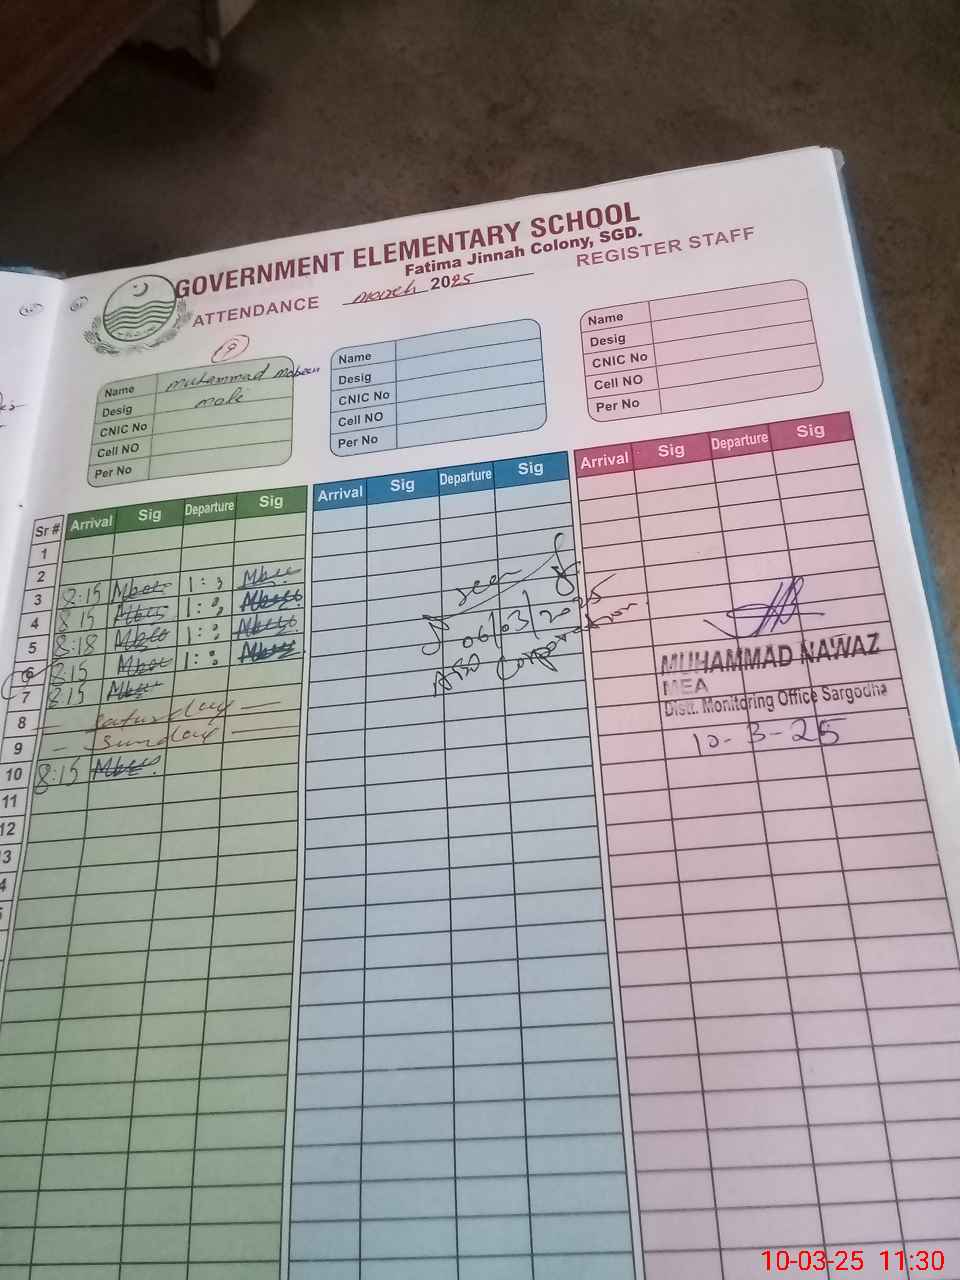 GOVERNMENT ELEMENTARY SCHOOL
Fatima Jinnah Colony, SGD.
ATTENDANCE March 2025 REGISTER STAFF
19
Name Muhammad Mobeen
Desig Mali
CNIC No
Cell NO
Per No
Name
Desig
CNIC No
Cell NO
Per No
Name
Desig
CNIC No
Cell NO
Per No
Sr # Arrival Sig Departure Sig Arrival Sig Departure Sig Arrival Sig Departure Sig
1
2
3 8:15
4 8:15
5 8:18
6 8:15
7 8:15
8 Saturday
9 Sunday
10 8:15
11
12
13
seen
06/03/2025
MUHAMMAD NAWAZ
MEA
Distt. Monitoring Office Sargodha
10-3-25
10-03-25 11:30